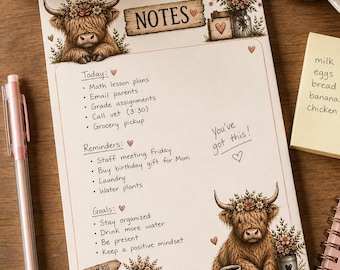 NOTES
Today:
• Math lesson plans
• Email parents
• Grade assignments
• Call vet (3:30)
• Grocery pickup
Reminders:
• Staff meeting Friday
• Buy birthday gift for Mom
• Laundry
• Water plants
Goals:
• Stay organized
• Drink more water
• Be present
• Keep a positive mindset
You've
got this!
milk
eggs
bread
banana
chicken